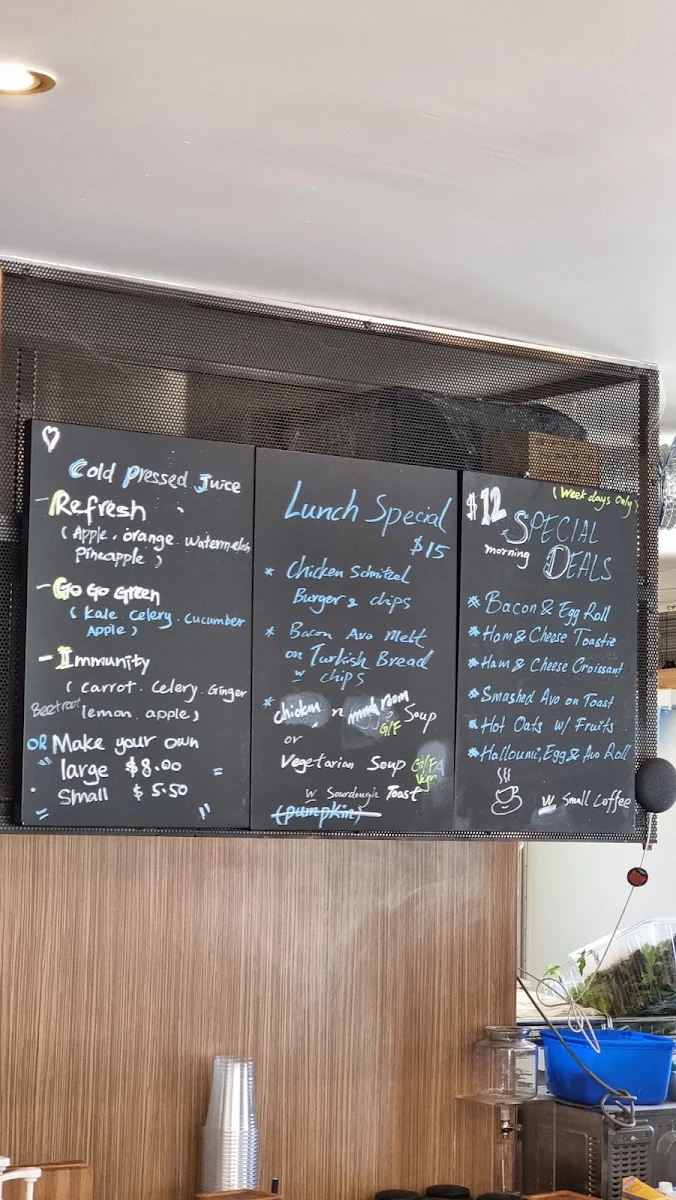 Cold Pressed Juice
- Refresh
( Apple . orange . watermelon
pineapple )
- Go Go Green
( kale . celery . cucumber
Apple )
- Immunity
( carrot . celery . Ginger
Beetroot lemon . apple )
OR Make your own
large $8.00
Small $5.50
Lunch Special
$15
* Chicken Schnitzel
Burger & chips
* Bacon Avo Melt
on Turkish Bread
w chips
* chicken n mushroom Soup
G/F
or
Vegetarian Soup G/F
Vgn
w Sourdough Toast
(pumpkin)
(Week days Only)
$12 SPECIAL
morning DEALS
* Bacon & Egg Roll
* Ham & Cheese Toastie
* Ham & Cheese Croissant
* Smashed Avo on Toast
* Hot Oats w/ Fruits
* Halloumi, Egg & Avo Roll
w Small Coffee